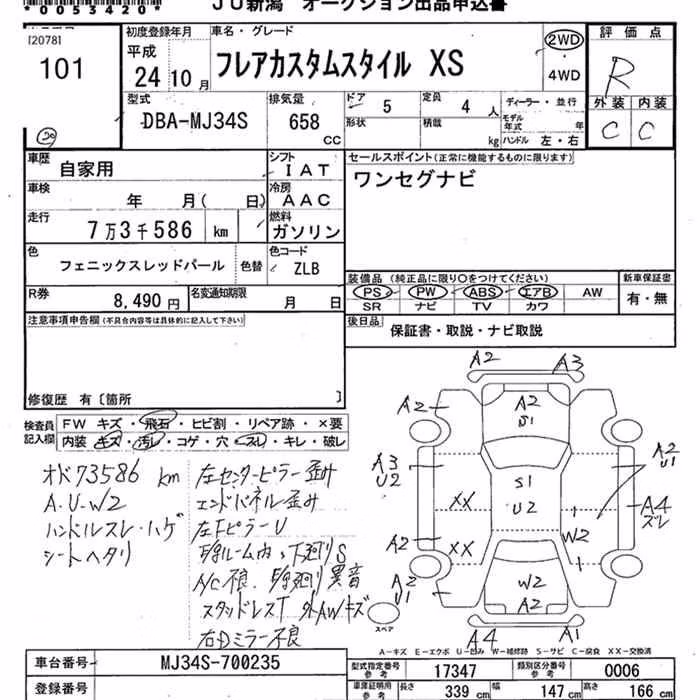 *0053420*
JU新潟 オークション出品申込書
I20781
101
初度登録年月
平成
24年10月
車名・グレード
フレアカスタムスタイル XS
2WD
4WD
評価点
R
外装 内装
C C
型式
DBA-MJ34S
排気量
658
CC
ドア 5
定員 4 人
形状
積載 kg
ディーラー・並行
モデル年式 年
ハンドル 左・右
車歴
自家用
シフト
IAT
車検
年 月( 日)
冷房
AAC
走行
7万3千586 km
燃料
ガソリン
セールスポイント(正常に機能するものに限ります)
ワンセグナビ
色
フェニックスレッドパール
色替
色コード
ZLB
R券
8,490 円
名変通知期限
月 日
装備品 (純正品に限り○をつけてください)
PS PW ABS エアB AW
SR ナビ TV カワ
新車保証書
有・無
後日品
保証書・取説・ナビ取説
注意事項申告欄(不具合内容等は具体的に記入して下さい)
修復歴 有〔箇所 〕
検査員記入欄
FW キズ・飛石・ヒビ割・リペア跡・×要
内装・キズ・汚レ・コゲ・穴・スレ・キレ・破レ
オド73586 km
A.U-W2
ハンドルスレ・ハゲ
シートヘタリ
左センターピラー歪み
エンドパネル歪み
左FピラーU
A/C不良
異音
スタッドレスT 外AWキズ
右Dミラー不良
A2 A3
A2 A2
S1
A3
U2
S1
U2
A2
U1
XX
A4
ズレ
A2 XX
W2
A2
U1
W2
A2
A4 A1
スペア
A-キズ E-エクボ U-凹み W-補修跡 S-サビ C-腐食 XX-交換済
車台番号
MJ34S-700235
登録番号
型式指定番号
参考
17347
類別区分番号
参考
0006
車庫証明用
参考
長さ 339 cm
幅 147 cm
高さ 166 cm